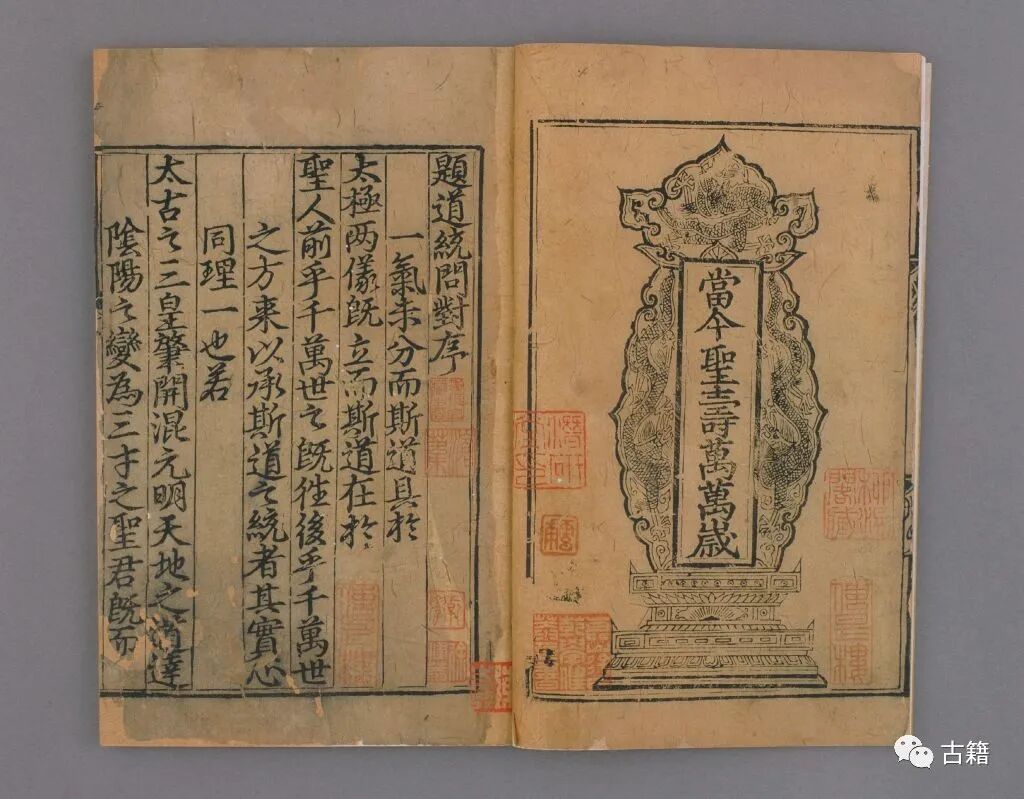 當今聖主壽萬萬歲
題道統問對序
一氣未分而斯道具於
太極两儀旣立而斯道在於
聖人前乎千萬世之旣徃後乎千萬世
之方來以承斯道之統者其實心
同理一也若
太古之三皇肇開混元明天地之道達
陰陽之變為三才之聖君旣而
傳是樓
古籍